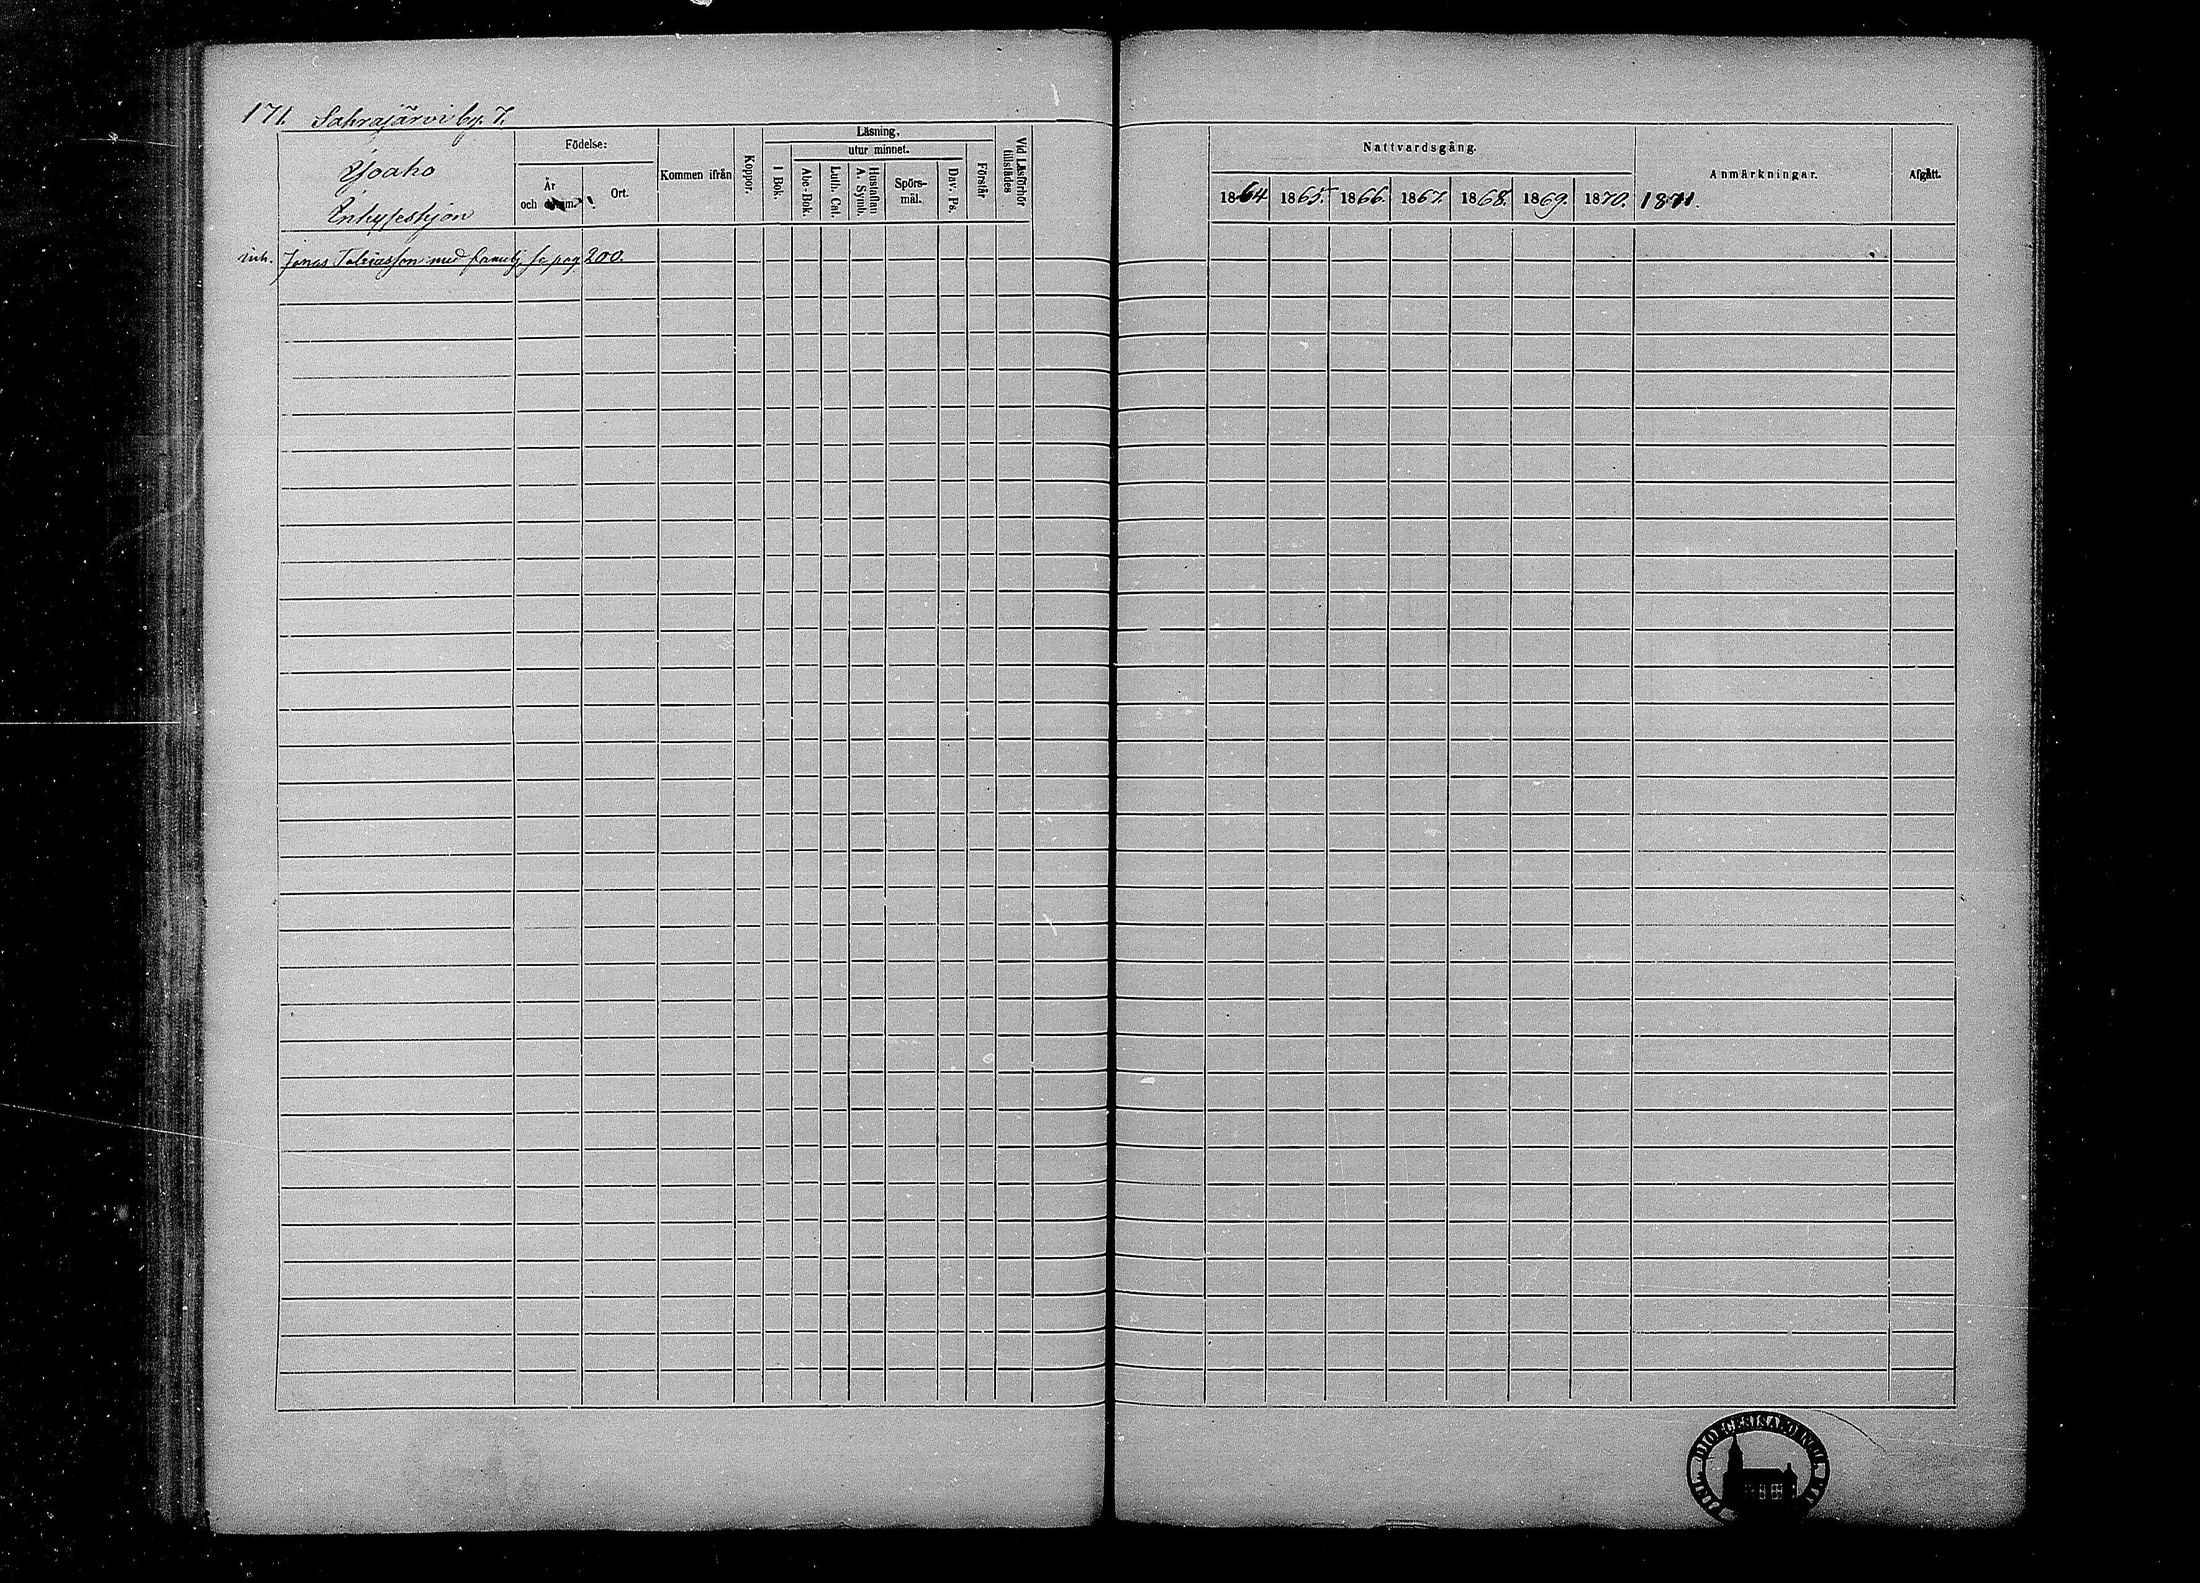 171. Sahrajärvi by. 7.
Ojoaho
Enkyleskjön
Födelse:
År
och datum.
Ort.
Kommen ifrån
Koppor.
Läsning,
utur minnet.
I Bok.
Abc-Bok.
Luth. Cat.
Hustaflan
A. Symb.
Spörs-
mål.
Dav. Ps.
Förstår
Vid Läsförhör
tillstädes
Nattvardsgång.
1864 1865. 1866. 1867. 1868. 1869. 1870. 1871.
Anmärkningar.
Afgått.
inh. Jonas Tobiasson med familj se pag 200.